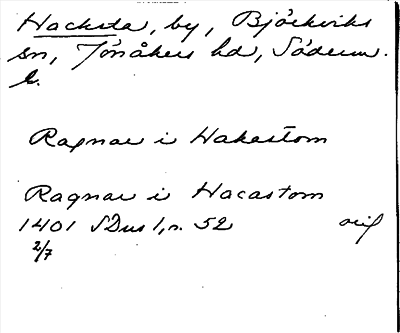 Hacksta, by, Björkviks
sn, Jönåkers hd, Söderm.
l.
Ragnar i Hakastom
Ragnar i Hacastom
1401 SDns 1, n. 52 orig
2/7